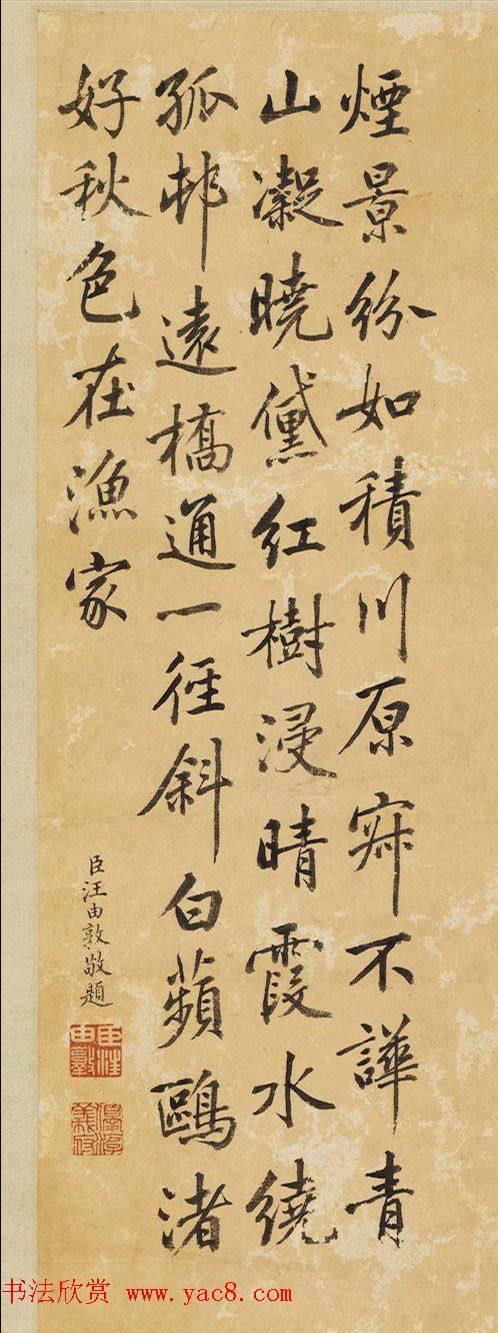 煙景紛如積川原寂不譁青
山凝曉黛紅樹浸晴霞水繞
孤邨遠橋通一徑斜白蘋鷗渚
好秋色在漁家
臣汪由敦敬題
臣汪由敦
书法欣赏 www.yac8.com